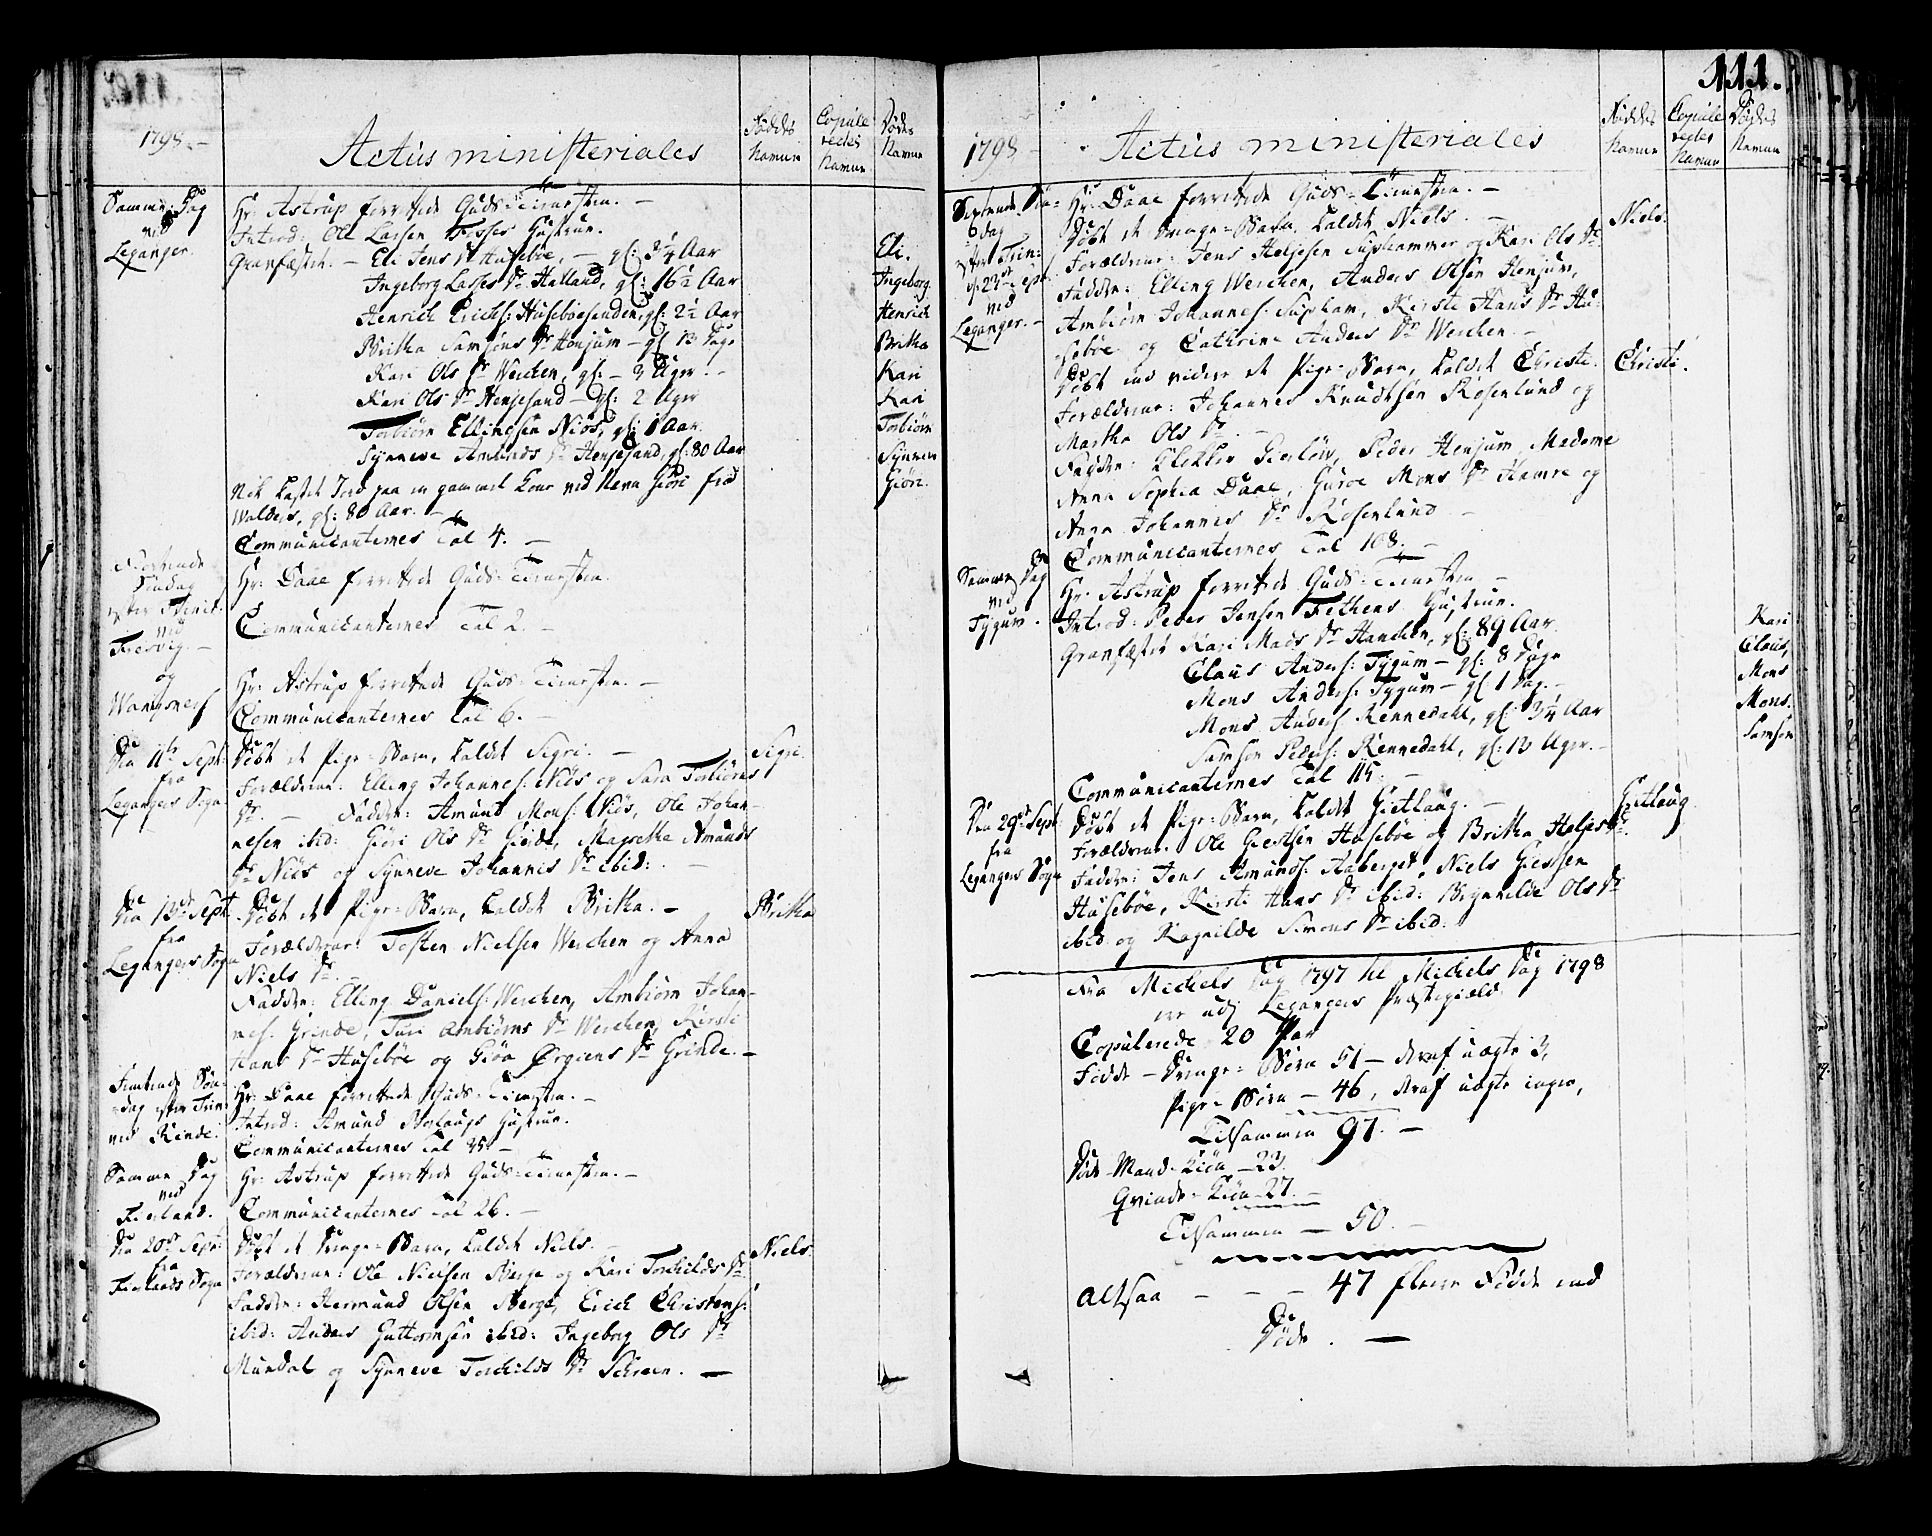 1798.
Actus ministeriales
Føddes Namne
Copule-
redes
Namne
Dødes
Namne
Samme Dag
ved
Leganger.
Hr: Astrup forrettede Guds-Tienesten. —
Introd: Ole Larsen Hustrue.
Grafæstet. — Eli Jens Dr Husebøe, — gl: 3¼ Aar
Eli.
Ingeborg Lasses Dr Hatland, gl: 16½ Aar
Ingeborg
Henrich Erichs: Husebøesanden, gl: 2½ Aar
Henrich
Britha Samsons Dr Henjum — gl 13 Dage
Britha
Kari Ols Dr Werchen, gl: — 3 Uger. —
Kari
Kari Ols Dr Henjesand — gl: 2 Uger
Kari
Torbiørn Ellingsen Niøs, gl: 1 Aar.
Torbiørn
Synneve Amunds Dr Henjesand, gl: 80 Aar
Synneve
Nok kastet Jord paa en gammel Kone ved Navn Giøri fra
Giøri.
Walders, gl: 80 Aar. —
Communicanternes Tal 4. —
Fiortende
Søndag
efter Trinit:
ved
Tresvig. —
Hr: Daae forrettede Guds-Tienesten.
Communicanternes Tal 2. —
og
Wangsnes
Hr: Astrup forrettede Guds-Tienesten. —
Communicanternes Tal 6. —
Den 11te Sept:
fra
Legangers Sogn
Døbt et Pige-Barn, kaldet Sigri. —
Sigri.
Forældrene: Elling Johannes: Niøs og Sara Torbiørns
Dr. — Faddere: Amund Mons: Niøs, Ole Johan-
nesen ibid: Giøri Ols Dr Giørde, Magrethe Amunds
Dr Niøs og Synneve Johannis Dr ibid: —
Den 13de Sept
fra
Legangers Sogn
Døbt et Pige-Barn, kaldet Britha. —
Britha
Forældrene: Tosten Nielsen Werchen og Anna
Niels Dr.
Faddere: Elling Daniels: Werchen, Ambiørn Johan-
nes: Grinde, Turi Ambiørns Dr Werchen, Kersti
Hans Dr Husebøe og Giøa Ørgiens Dr Grinde. —
Femtende Søn-
dag efter Trin:
ved Rinde.
Hr: Daae forrettede Guds-Tienesten. —
Introd: Amund Hustrue.
Communicanternes Tal 75 —
Samme Dag
ved
Fierland.
Hr: Astrup forrettede Guds-Tienesten. —
Communicanternes Tal 26. —
Den 20de Sept:
fra
Fierlands Sogn
Døbt et Drenge-Barn, kaldet Niels. —
Niels.
Forældrene: Ole Nielsen Berge og Kari Torchilds Dr
Faddere: Hermund Olsen Berge, Erich Christens:
ibid: Anders Guttormsen ibid: Ingeborg Ols Dr
Mundal og Synneve Torchilds Dr Schreen. —
111.
1798
Actus ministeriales
Føddes
Namne
Copule-
redes
Namne
Dødes
Namne
Søn-
dag
efter Trin:
d: 23de Sept:
ved
Leganger. —
Hr: Daae forrettede Guds-Tienesten. —
Døbt et Drenge-Barn, kaldet Niels. —
Niels.
Forældrene: Jens Heljesen Suphammer og Kari Ols Dr.
Faddere: Elling Werchen, Anders Olsen Henjum,
Ambiørn Johannes: Supham, Kersti Hans Dr Hu-
sebøe og Cathrine Anders Dr Werchen. —
Døbt end videre et Pige-Barn, kaldet Christi.
Christi.
Forældrene: Johannes Knudtsen Rosenlund og
Martha Ols Dr. —
Faddere: Klokker Gierløv, Peder Henjum, Madame
Anna Sophia Daae, Guroe Mons Dr Hamre og
Anna Johannis Dr Rosenlund —
Communicanternes Tal 108. —
Samme Dag
ved
Tygum.
Hr: Astrup forrettede Guds-Tienesten —
Introd: Peder Jensen Hustrue.
Grafæstet Kari Mads Dr Hanchen, gl: 89 Aar
Kari
Claus Anders: Tygum — gl: 8 Dage
Claus,
Mons Anders: Tygum — gl: 1 Dag. —
Mons
Mons Anders: Rennedahl, gl: 3¼ Aar
Mons.
Samson Peders: Rennedahl, gl: 13 Uger. —
Samson
Communicanternes Tal 115. —
Den 29de Sept:
fra
Legangers Sogn
Døbt et Pige-Barn, kaldet Gietlaug. —
Gietlaug
Forældrene Ole Giertsen Husebøe og Britha Heljes Dr.
Faddere: Jens Amunds: Aaberget, Niels Giertsen
Husebøe, Kersti Hans Dr ibid: Ols Dr
ibid og Ragnilde Simons Dr ibid:
Fra Michels Dag 1797 til Michels Dag 1798
er udj Legangers Præstegield
Copulerede 20 Par
Fødde — Drenge-Børn 51 — deraf uægte 3,
Pige-Børn — 46, deraf uægte ingen,
Tilsammen 97. —
Døde-Mand-Kiøn — 23.
Qvinde-Kiøn — 27. —
Tilsammen — 50. —
Altsaa — — — 47 fleere Fødde end
Døde. —